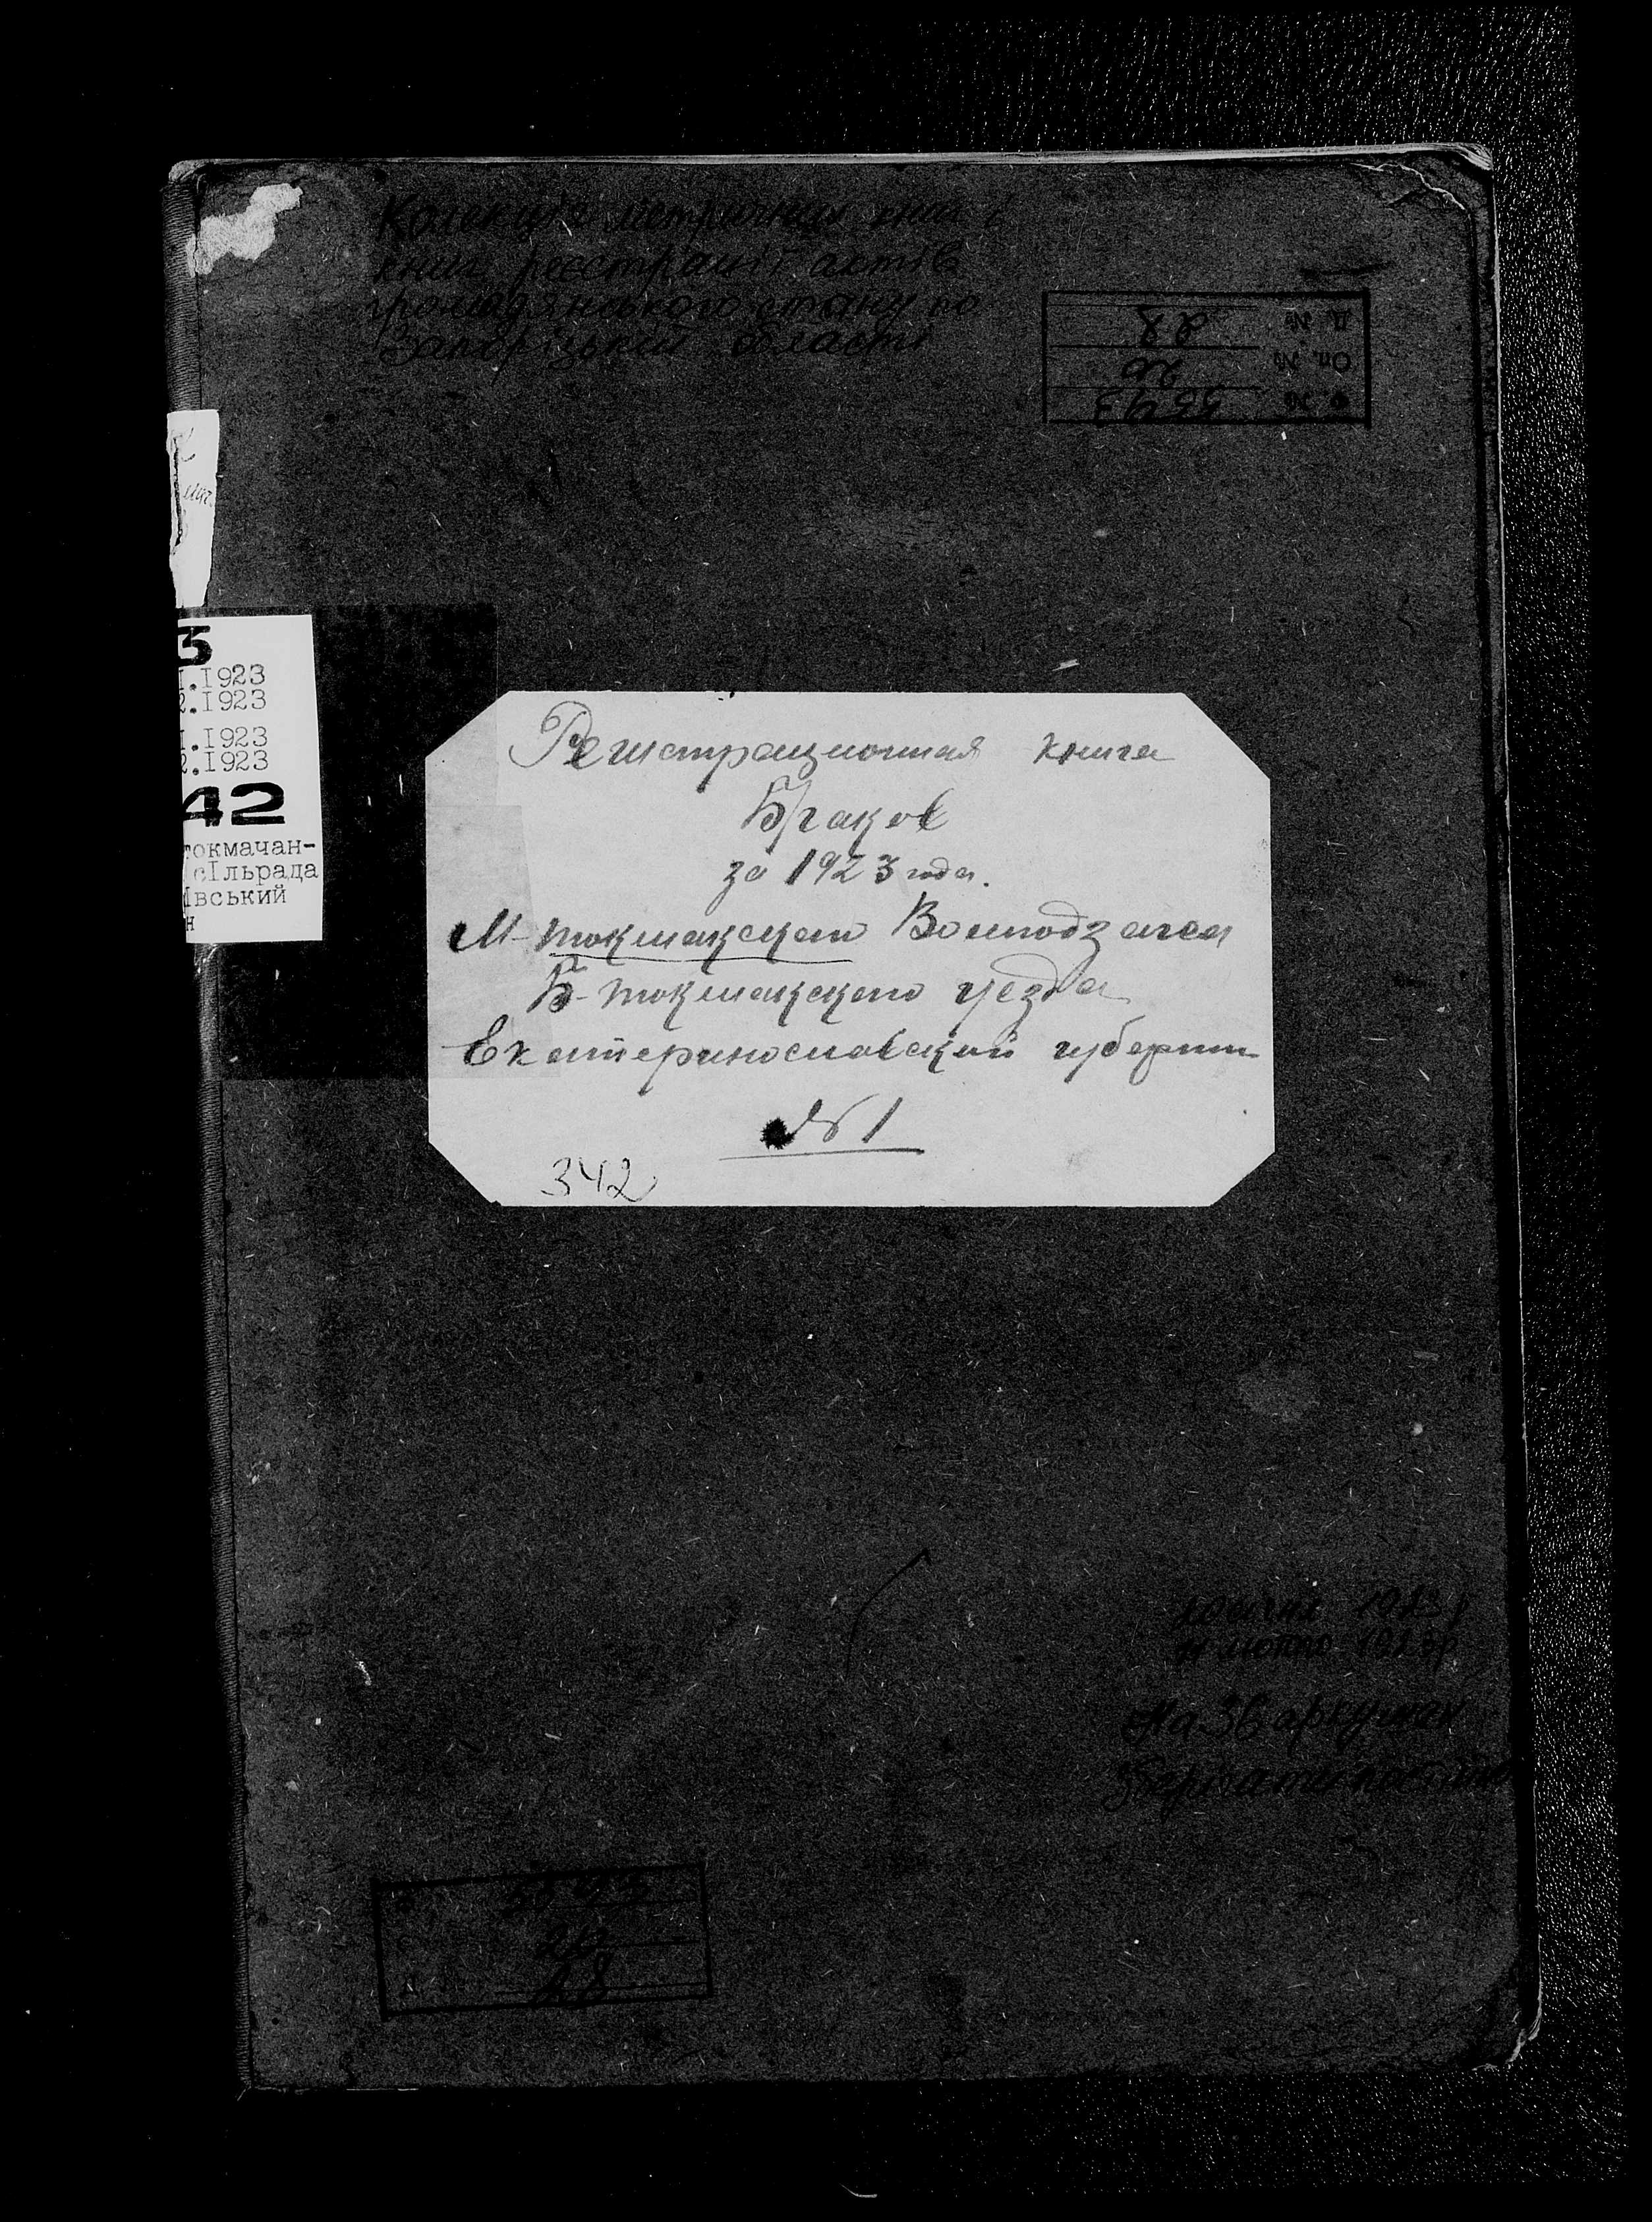 Колекція метричних книг і
книг реєстрації актів
громадянського стану по
Запорізькій області
Ф. № 5593
Оп. № 20
Д. № 28
3
1.1923
2.1923
1.1923
2.1923
42
токмачан-
сІльрада
Івський
н
Регистрационная книга
Браков
за 1923 года.
М-токмакского Волподзагса
Б-токмакского уезда
Екатеринославской губернии
№ 1
342
1923 р
лютого 1923 р
На 36 аркушах
Зберігати постійно
5593
20
28